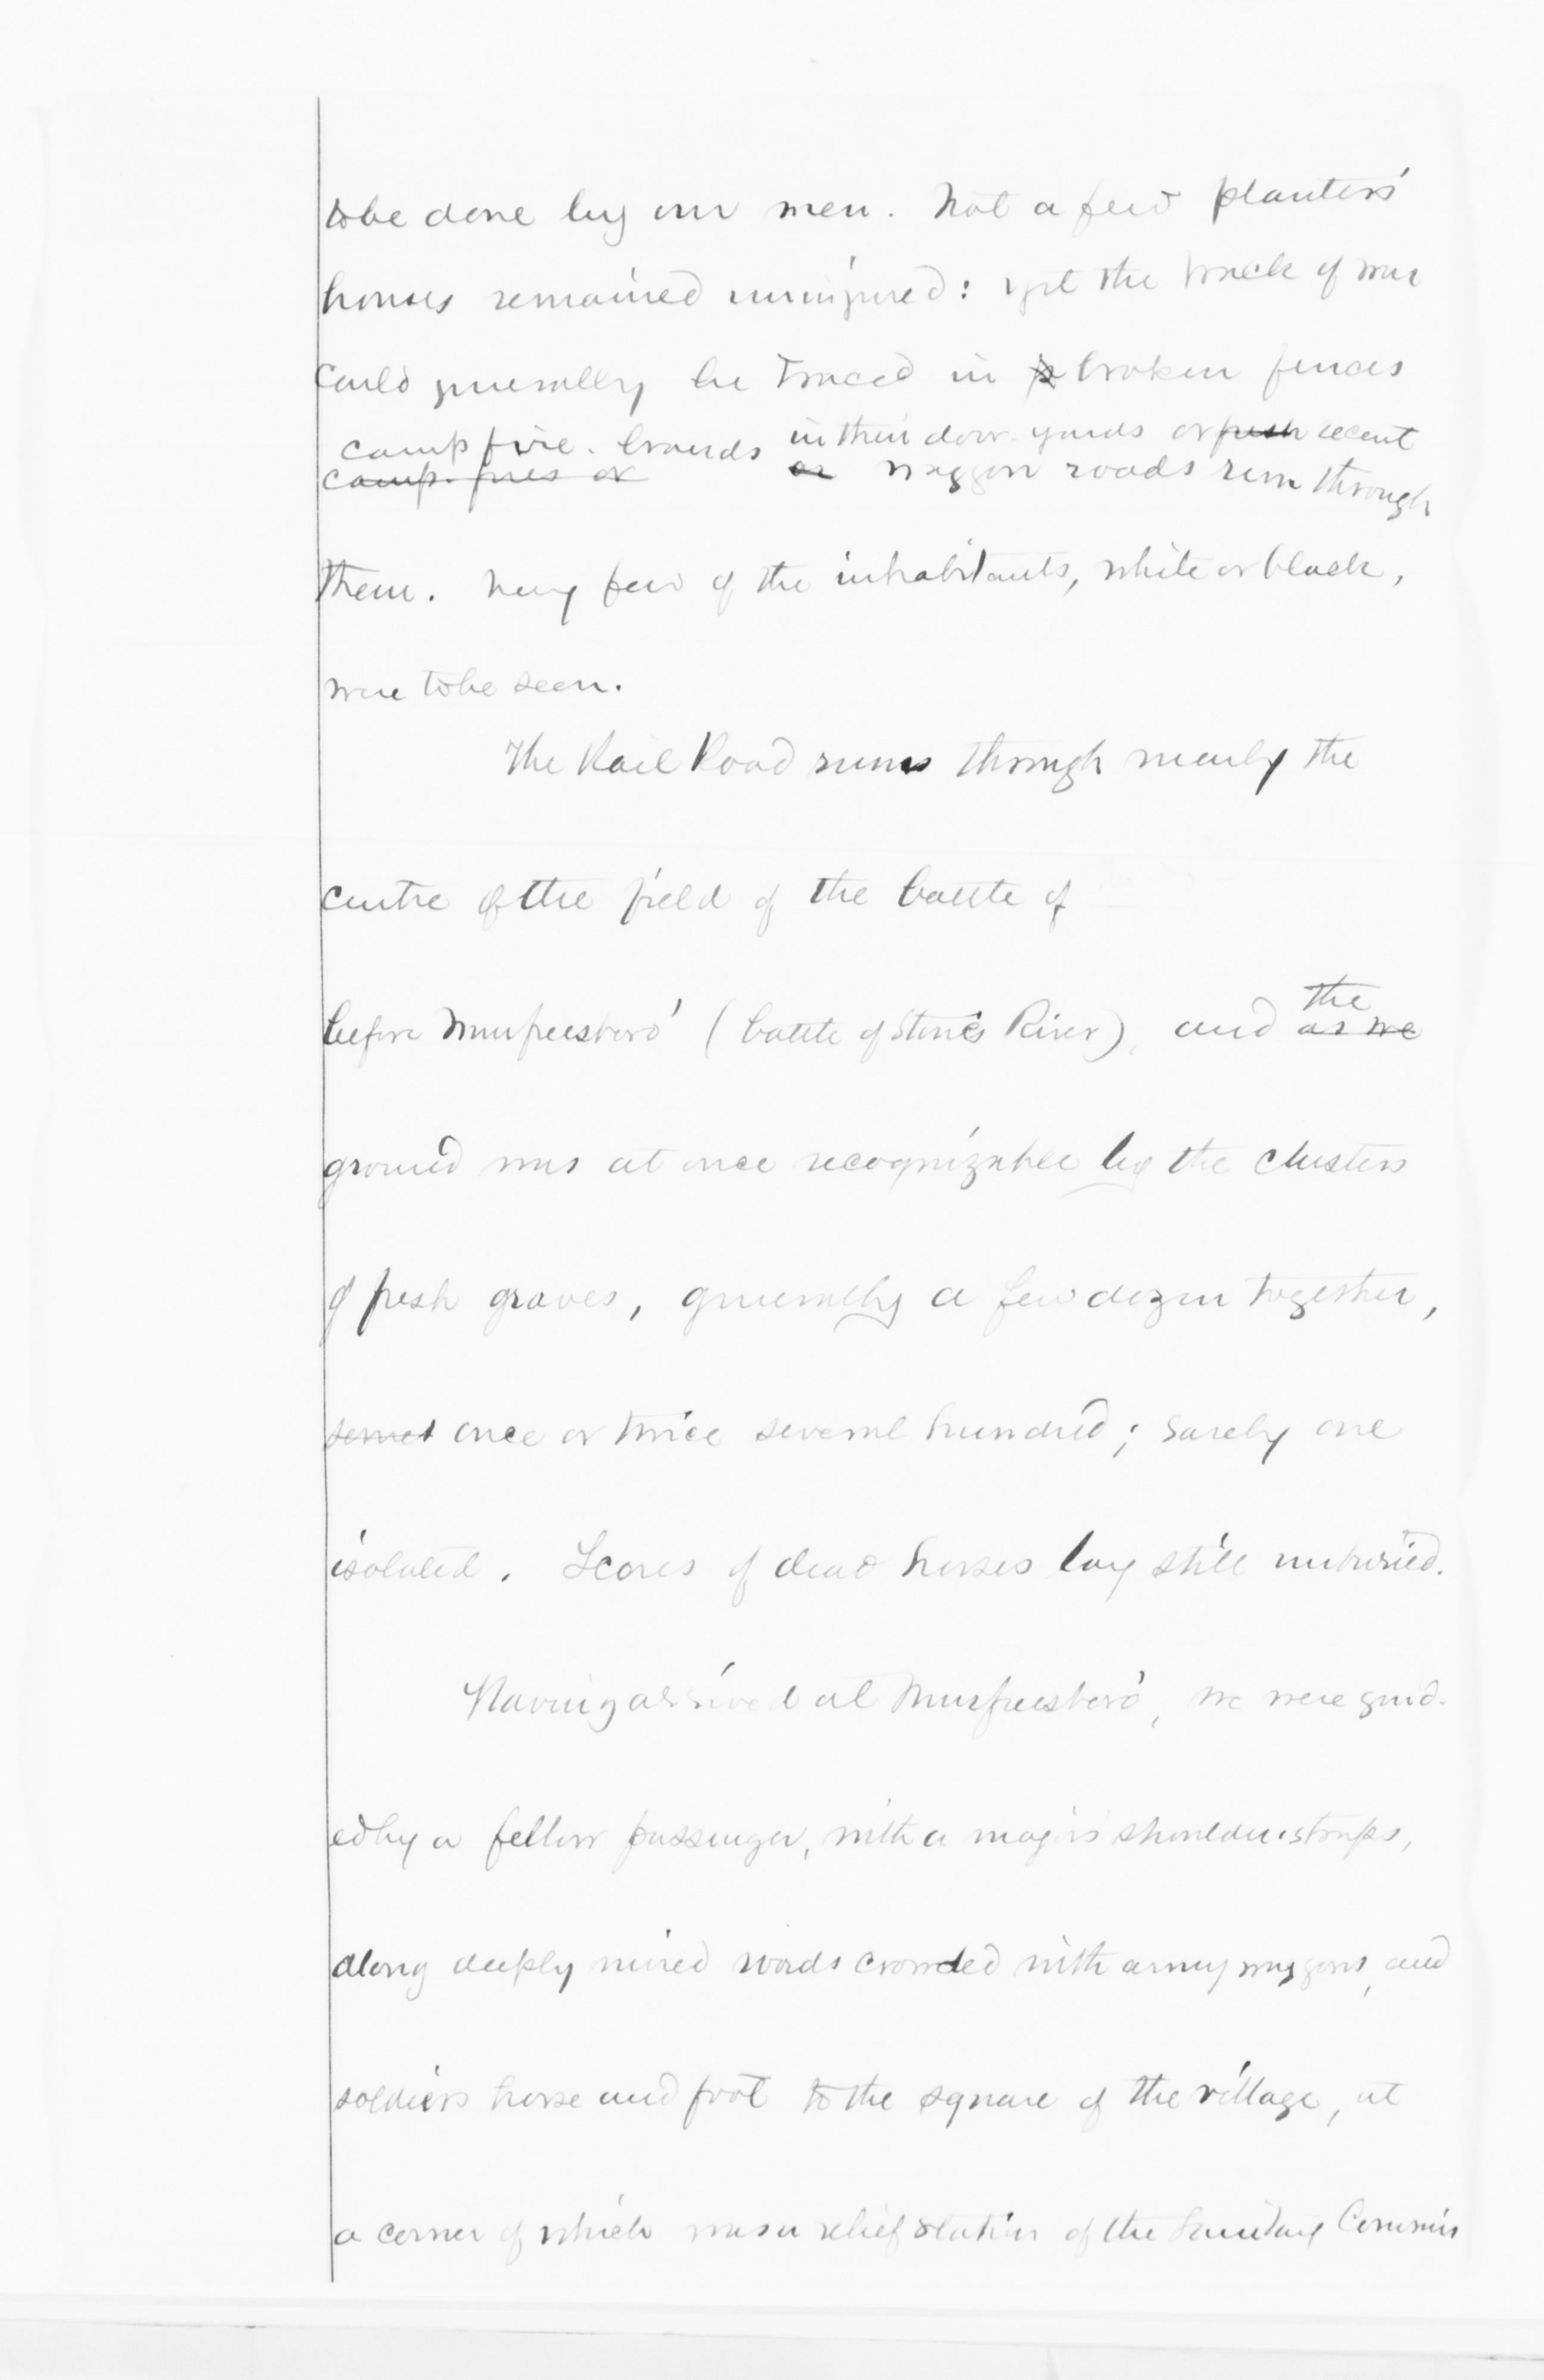 to be done by our men. Not a few planters'
houses remained uninjured: yet the track of war
could generally be traced in b broken fences
camp fire-brands in their door-yards or fresh recent
camp-fires or or waggon roads run through
them. Very few of the inhabitants, white or black,
were to be seen.
The Rail Road runs through nearly the
centre of the field of the battle of
the
before Murfreesboro' (battle of Stone's River), and as we
ground was at once recognizable by the clusters
of fresh graves, generally a few dozen together,
somet once or twice several hundred; rarely one
isolated. Scores of dead horses lay still unburied.
Having arrived at Murfreesboro', we were guid-
ed by a fellow passenger, with a major's shoulder-straps,
along deeply mired roads crowded with army waggons, and
soldiers horse and foot to the square of the village, at
a corner of which was a relief station of the Sanitary Commis